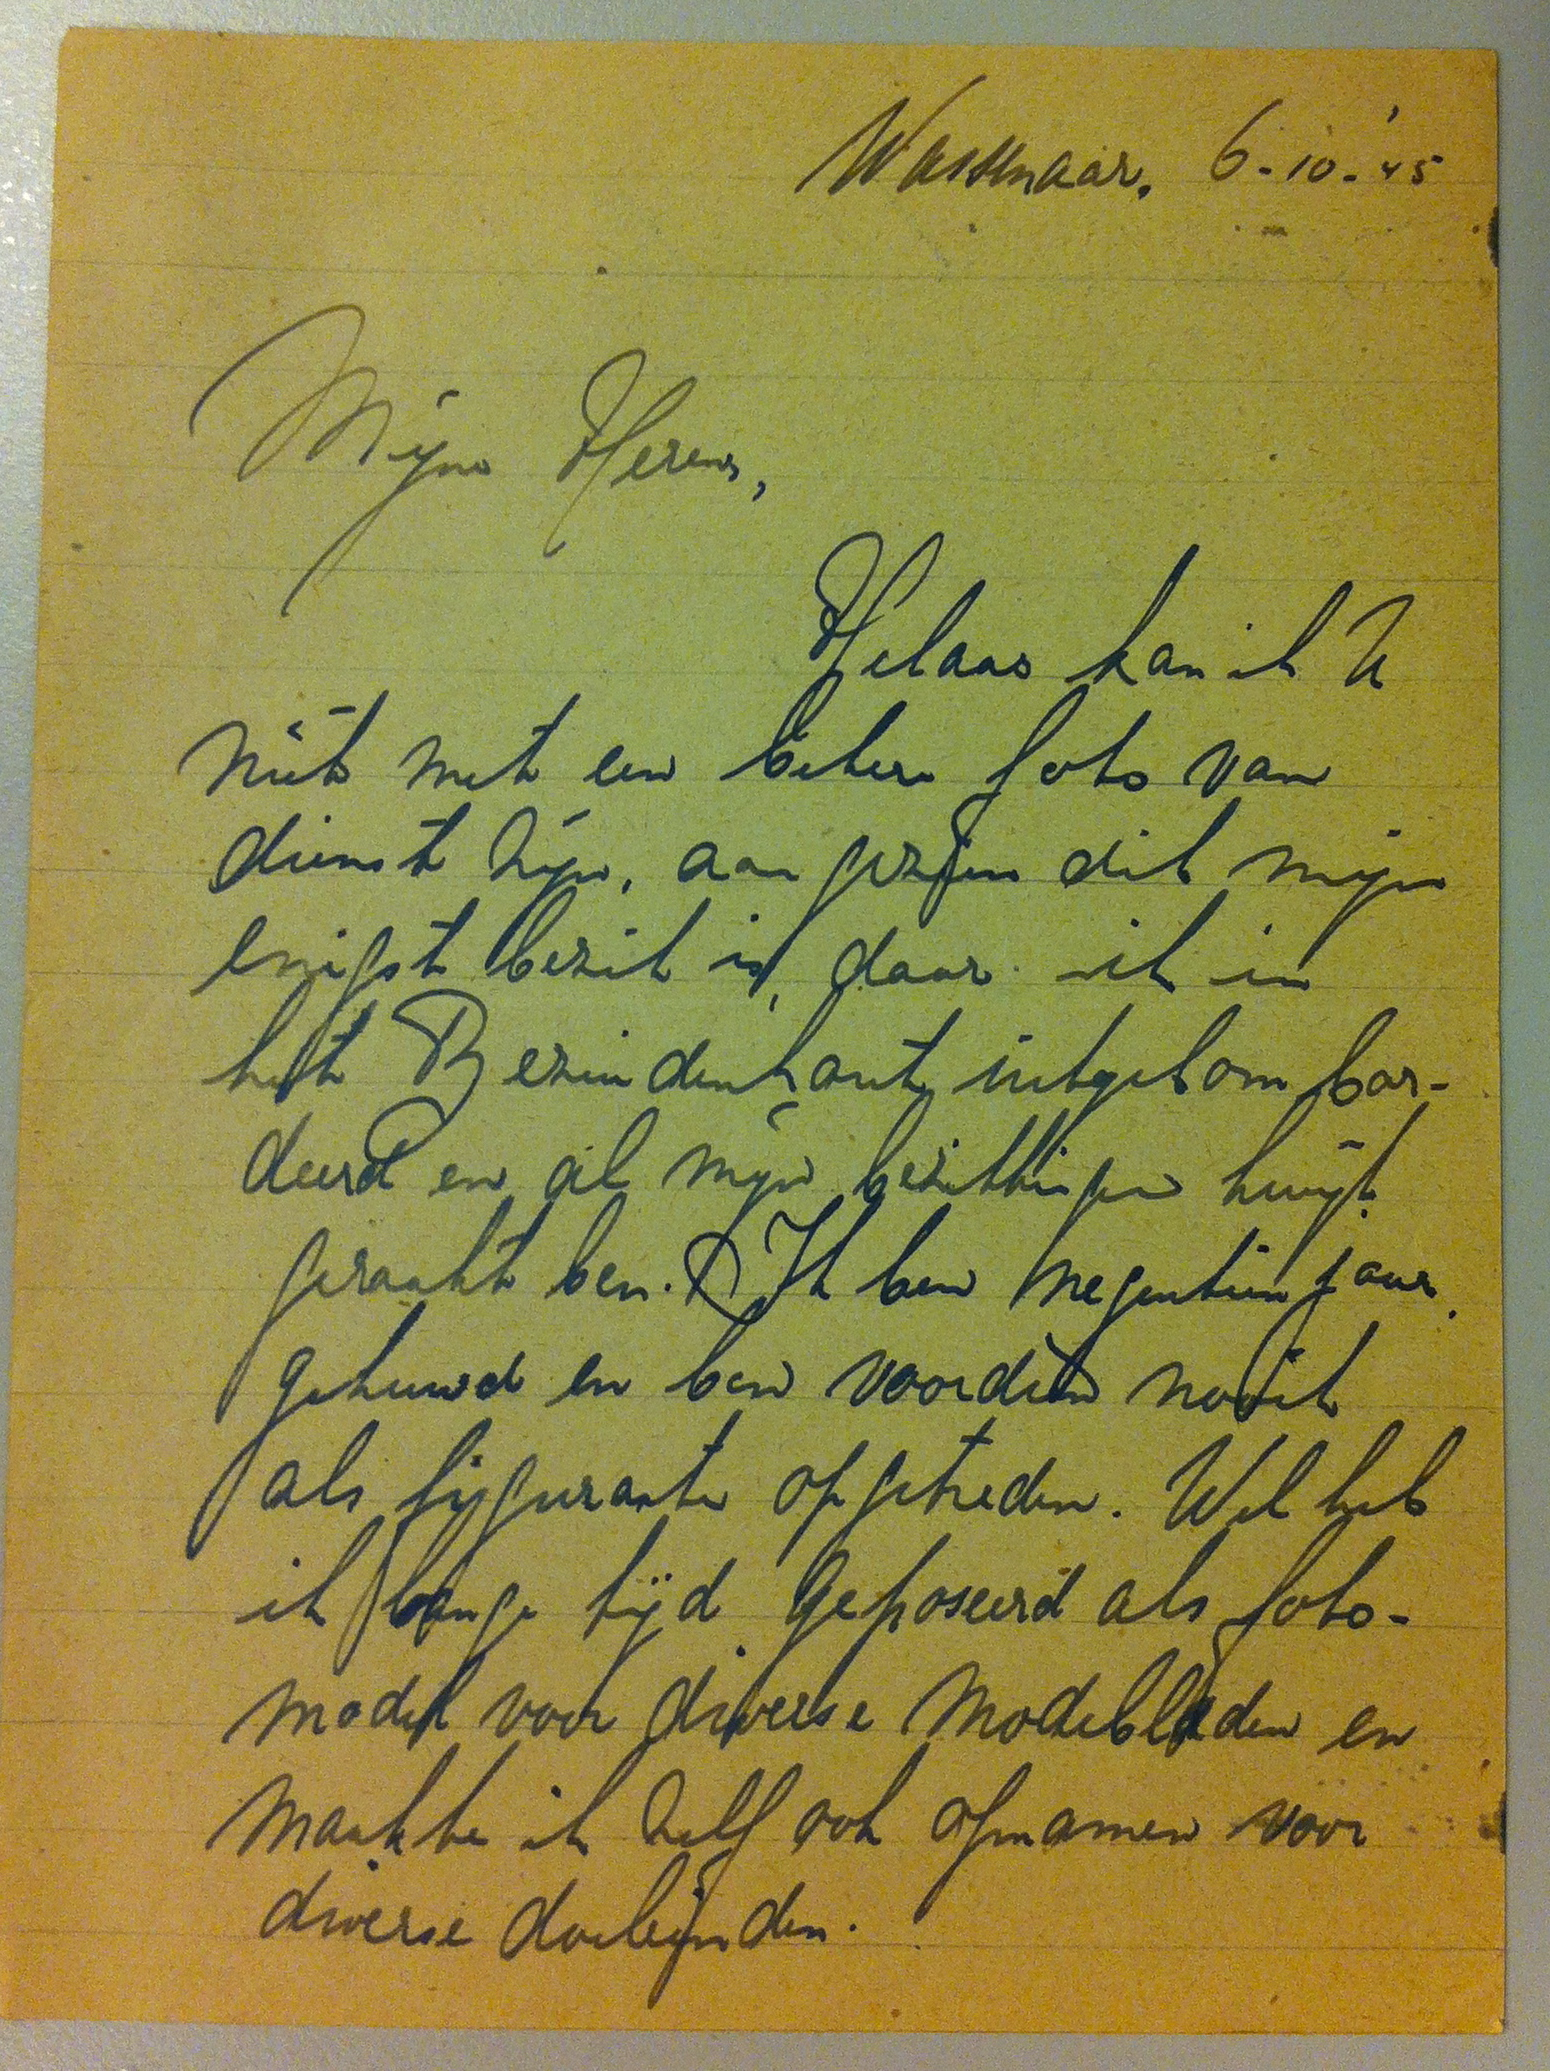 Wassenaar, 6-10-'45
Mijne Heren,
Helaas kan ik U
niet met een betere foto van
dienst zijn, aangezien dit mijn
enigst bezit is, daar ik in
het Bezuidenhout uitgebombar-
deerd en al mijn bezittingen kwijt
geraakt ben. Ik ben negentien jaar
gehuwd en ben voordien nooit
als figurante opgetreden. Wel heb
ik lange tijd geposeerd als foto-
model voor diverse modebladen en
maakte ik zelf ook opnamen voor
diverse doeleijnden.